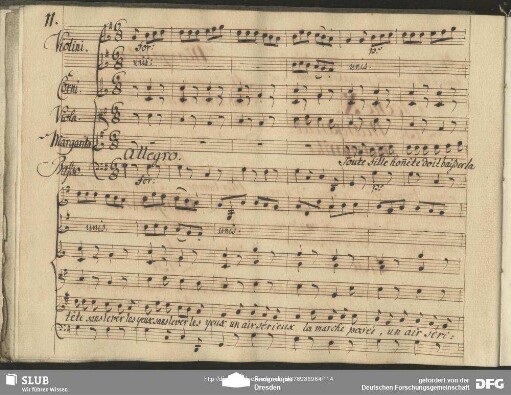 11.
Violini.
for:
p:
unis:
unis:
Corni.
Viola.
Margarita
Toute fille honête doit baisser la
Allegro.
Basso
for:
p:
unis.
unis:
tête sans lever les yeux sans lever les yeux un air sérieux, la marche posée, un air séri:
SLUB
Wir führen Wissen.
Dresden
gefördert von der
Deutschen Forschungsgemeinschaft
DFG